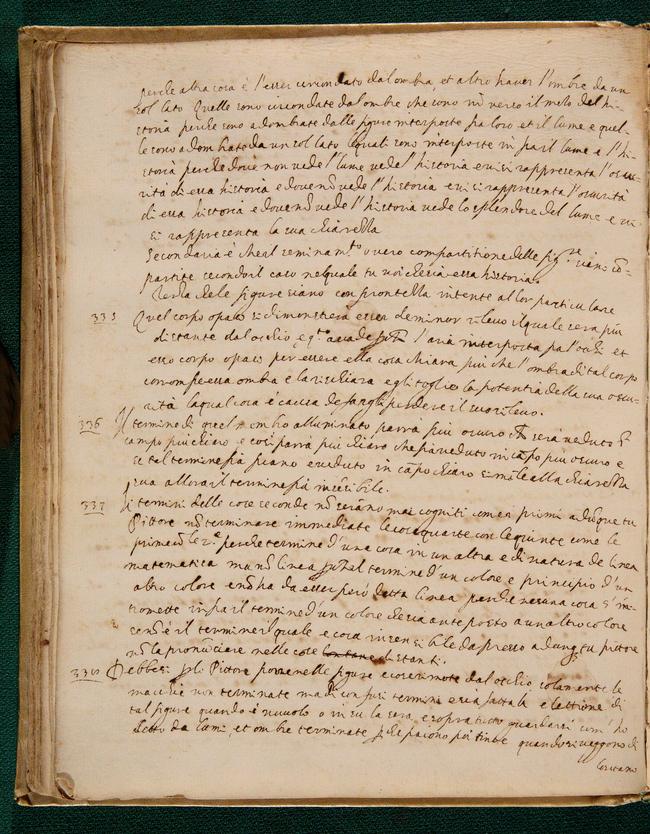 perche altra cosa è l'esser circondato dal ombra, et altro haver l'ombre da un
sol lato Quelle sono circondate dal ombre che sono in verso il mezo del hi-
storia perche sono adombrate dalle figure interposte fra loro et il lume e quel-
le sono adombrate da un sol lato le quali sono interposte infra il lume e l'hi-
storia perche dove non vede l'lume vede l'historia e vi si rappresenta l'oscu-
rità di essa historia e dove nõ vede l'historia e vi si rappresenta l'oscurità
di essa historia e dove nõ vede l'historia vede lo splendore del lume e vi
si rappresenta la sua chiarezza
Secondaria è che il overo compartitione delle fig.re siano cõ-
partite secondo il caso nel quale tu voi che sia essa historia.
Terza che le figure siano con prontezza intente al lor particulare
335 Quel corpo opaco si dimosterrà esser de minor rilievo il quale sera piu
distante dal ochio e q.to accade l'aria interposta fra l'ochio et
esso corpo opaco per essere ella cosa chiara piu che l'ombra di tal corpo
corrompe essa ombra e la rischiara e gli toglie la potentia della sua oscu-
rità la qual cosa è causa de fargli perdere il suo rilievo.
336 Il termine di quel membro alluminato parrà piu oscuro che serà veduto in
campo piu chiaro e cosi parrà piu chiaro che fia veduto in cãpo piu oscuro e
se tal termine fia piano e veduto in cãpo chiaro simile alla chiarezza
sua allora il termine fia insẽsibile.
337 I termini delle cose seconde nõ serano mai cogniti come i primi adũque tu
Pittore nõ terminare immediate le cose quarte con le quinte come le
prime cõ le 2.e perche termine d'una cosa in un altra e di natura de linea
matematica ma nõ linea perche il termine d'un colore e principio d'un
altro colore e nõ ha da esser però detta linea perche nesuna cosa s'in-
tromette infra il termine d'un colore che sia ante posto a un altro colore
se nõ è il termine il quale e cosa insensibile da presso adunq. tu pittore
nõ la pronũciare nelle cose distanti.
338 Debbesi per il Pittore porre nelle figure e cose remote dal ochio solamente le
machie non terminate ma di confusi termini e sia fatta la elettione di
tal figure quando è nuvolo o in su la sera e sopra tutto guardarsi com' ho
detto da lumi et ombre terminate perche paiono poi tinte quando si veggono di
lontano